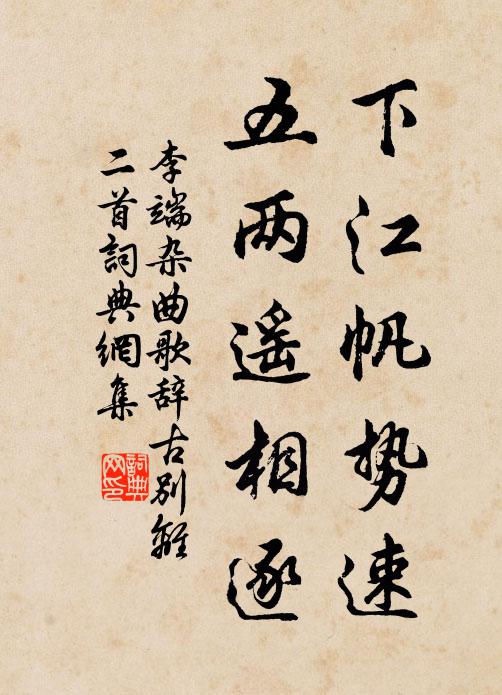 下江帆势速
五两遥相逐
李端杂曲歌辞古别離
二首詞典網集
詞典网印